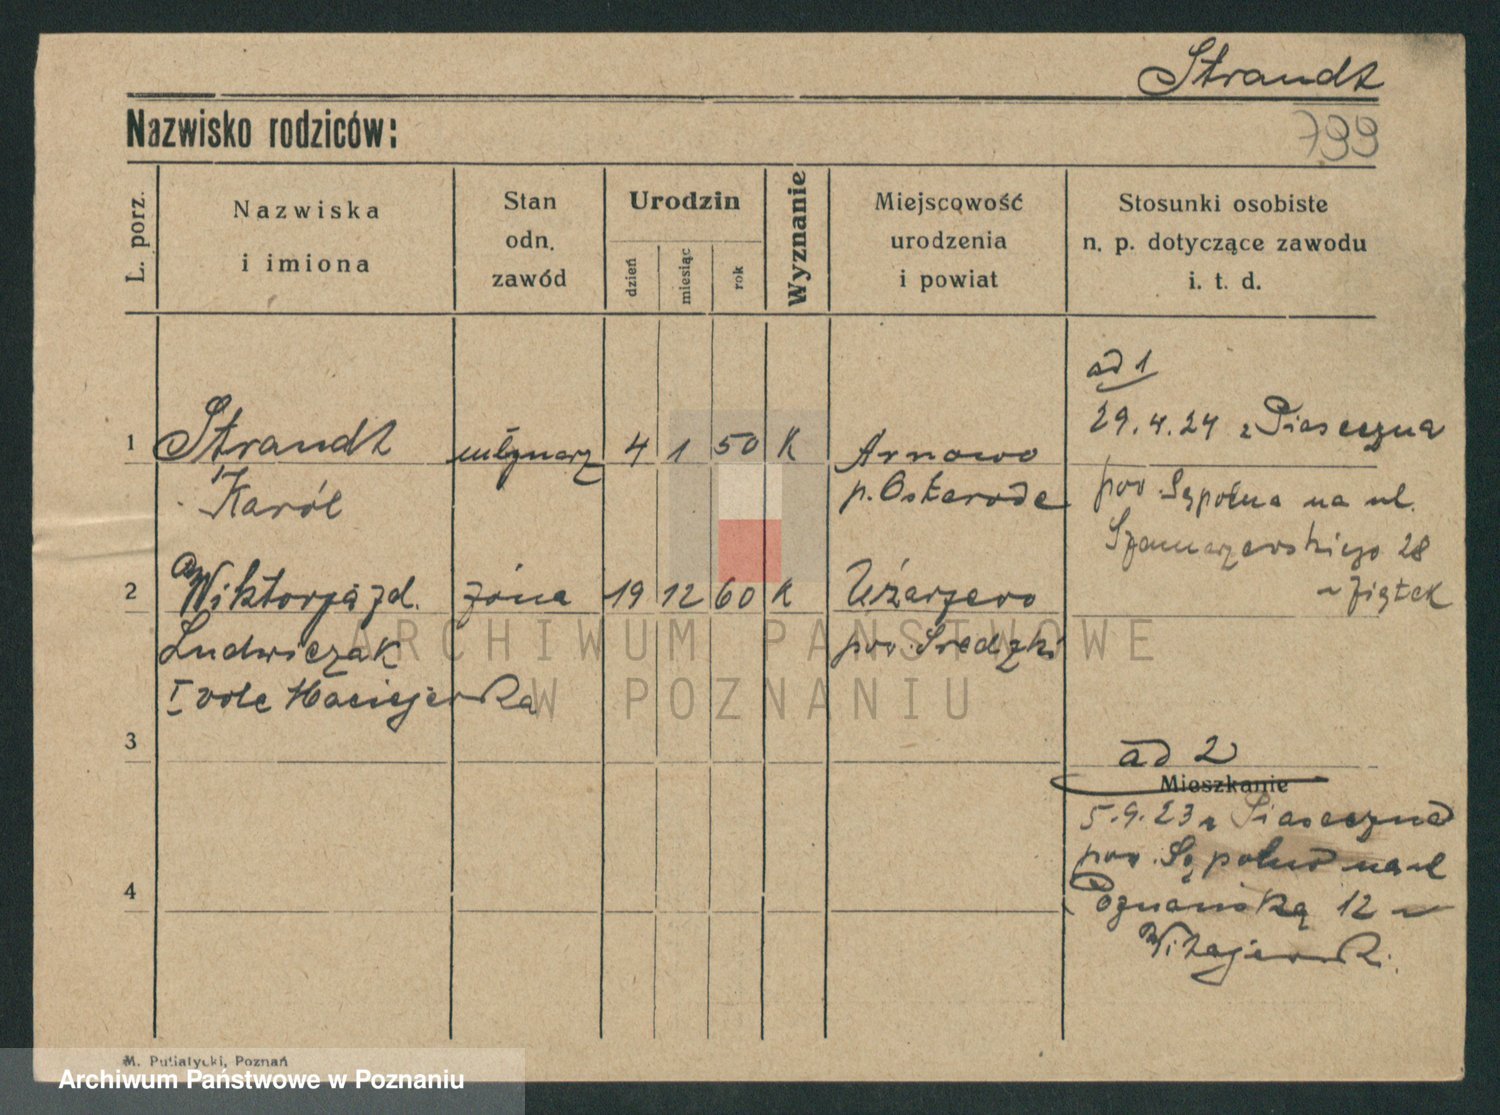 Strandt
Nazwisko rodziców:
799
L. porz.
Nazwiska
i imiona
Stan
odn.
zawód
Urodzin
dzień
miesiąc
rok
Wyznanie
Miejscowość
urodzenia
i powiat
Stosunki osobiste
n. p. dotyczące zawodu
i. t. d.
ad 1
1 Strandt młynarz 4 1 50 K Arnowo
Karól p. Osterode
29.4.24 z Piaseczna
pow. Sępolna na ul.
Szamarzewskiego 28
Ziętek
2 Wiktorja zd. żóna 19 12 60 K Użarzewo
Ludwiczak pow. Średzki
I vole Maciejewska
3
ad 2
Mieszkanie
5.9.23 z Piaseczna
pow. Sępolno na ul
Poznańską 12
4
M. Putiatycki, Poznań
ARCHIWUM PAŃSTWOWE
W POZNANIU
Archiwum Państwowe w Poznaniu